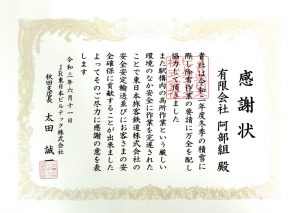 感謝状
有限会社 阿部組 殿
貴社は令和二年度冬季の積雪に
際し除雪作業の要請に万全を配し
協力して頂きました
また駅構内の高所作業という厳しい
環境のなか安全に作業を完遂された
ことで東日本旅客鉄道株式会社の
安全安定輸送並びにお客さまの安
全確保に貢献することが出来ました
よってそのご尽力に感謝の意を表
します
令和三年六月十一日
JR東日本ビルテック株式会社
秋田支店長 太田 誠一